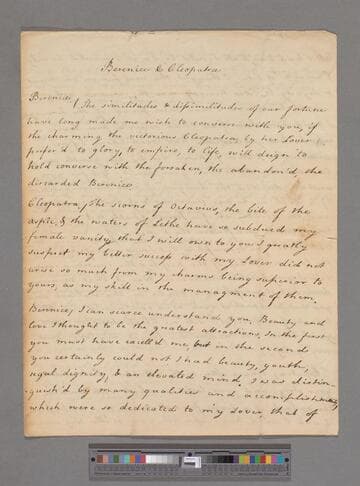 Berenice & Cleopatra
Berenice, The similitudes & dissimilitudes of our fortune
have long made me wish to converse with you, if
the charming the victorious Cleopatra, by her Lover
prefer'd to glory, to empire, to life, will deign to
hold converse with the forsaken, the abandon'd the
discarded Bernice.
Cleopatra, The scorns of Octavius, the bite of the
aspic, & the waters of Lethe have so subdued my
female vanity, that I will own to you I greatly
suspect my better success with my Lover did not
arise so much from my charms being superior to
yours, as my skill in the managment of them.
Bernice, I can scarce understand you, Beauty and
love I thought to be the greatest attractions, In the first
you must have excell'd me, but in the second
you certainly could not I had beauty, youth,
regal dignity, & an elevated mind, I was distin
guish'd by many qualities and accomplishments,
which were so dedicated to my Lover, that of